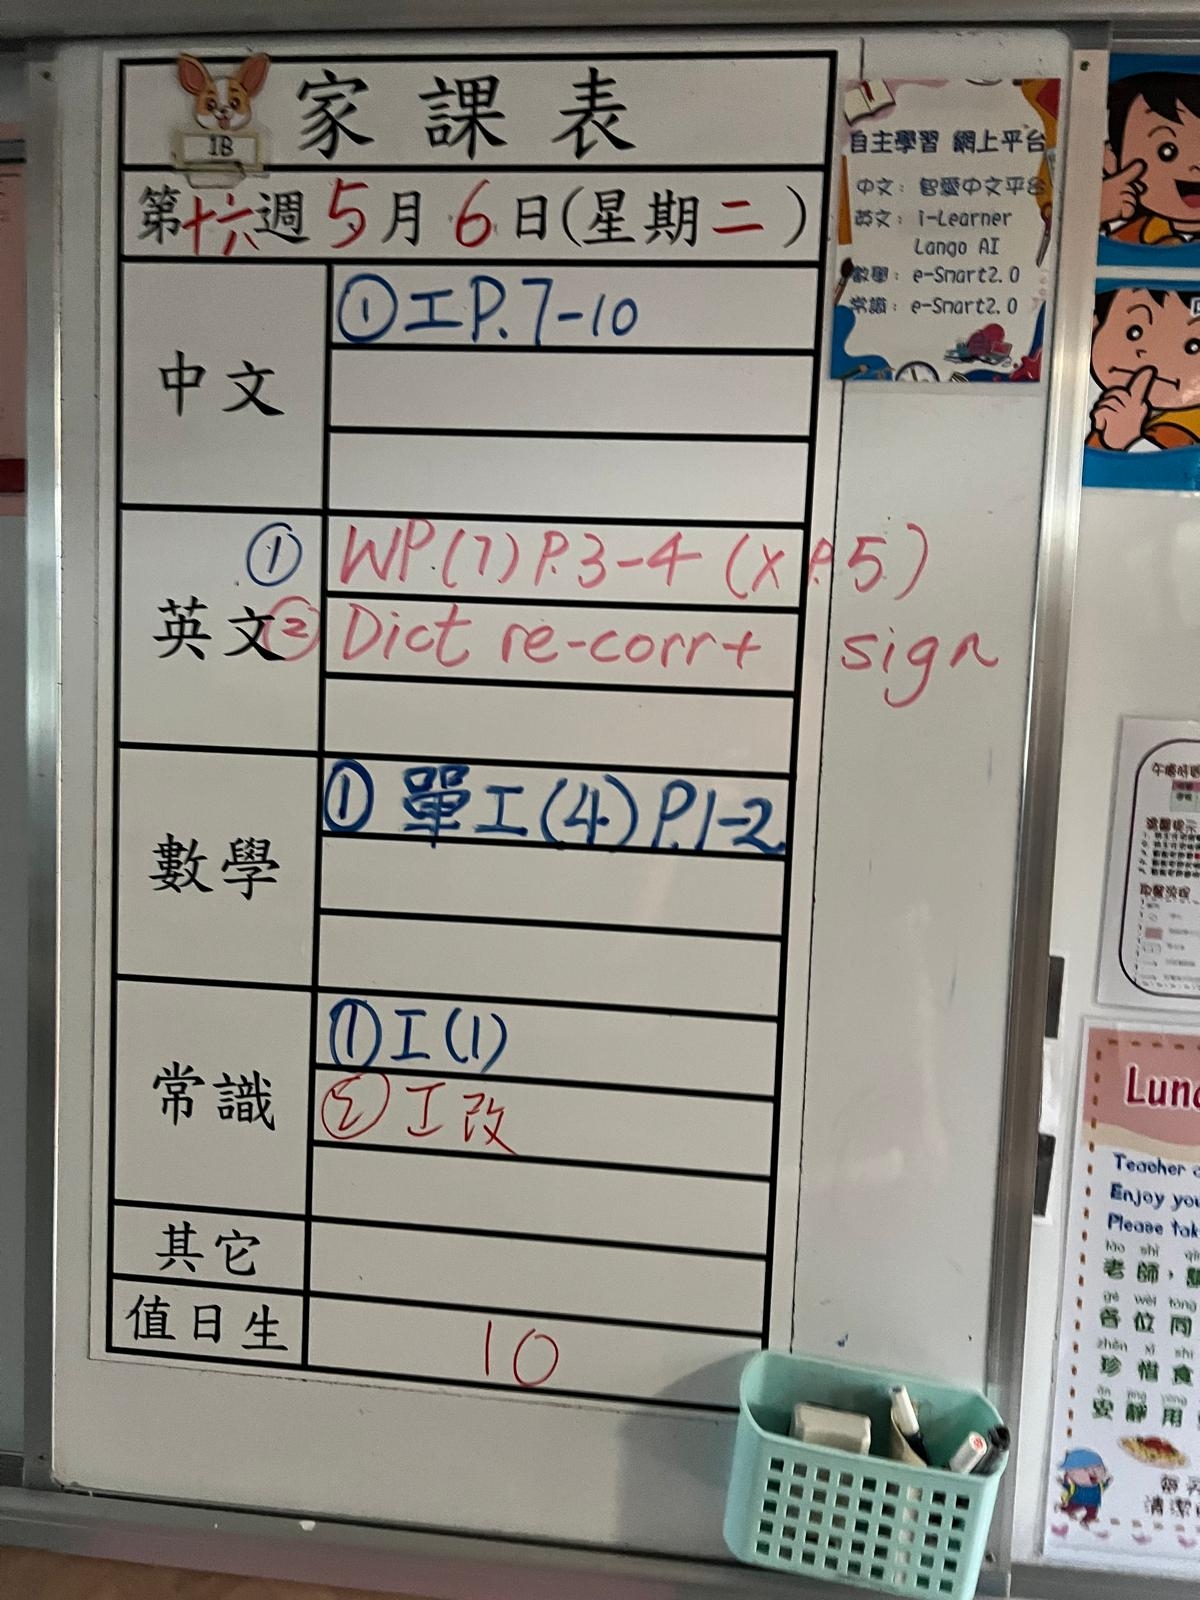 家課表
1B
第十六週5月6日(星期二)
中文
①工P.7-10
英文
① WP.(7) P.3-4 (x P.5)
② Dict re-corr+ sign
數學
① 單工(4) P.1-2
常識
①工(1)
②工改
其它
值日生
10
自主學習 網上平台
中文: 智愛中文平台
英文: i-Learner
Lango AI
數學: e-Smart2.0
常識: e-Smart2.0
Teacher
Enjoy you
Please tak
lǎo shī
老師,
gè wèi tóng
各位同
zhēn xī shí
珍惜食
ān jìng yòng
安靜用
清潔